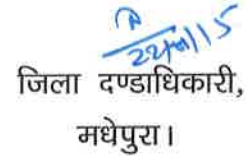 22/01/15
जिला दण्डाधिकारी,
मधेपुरा।